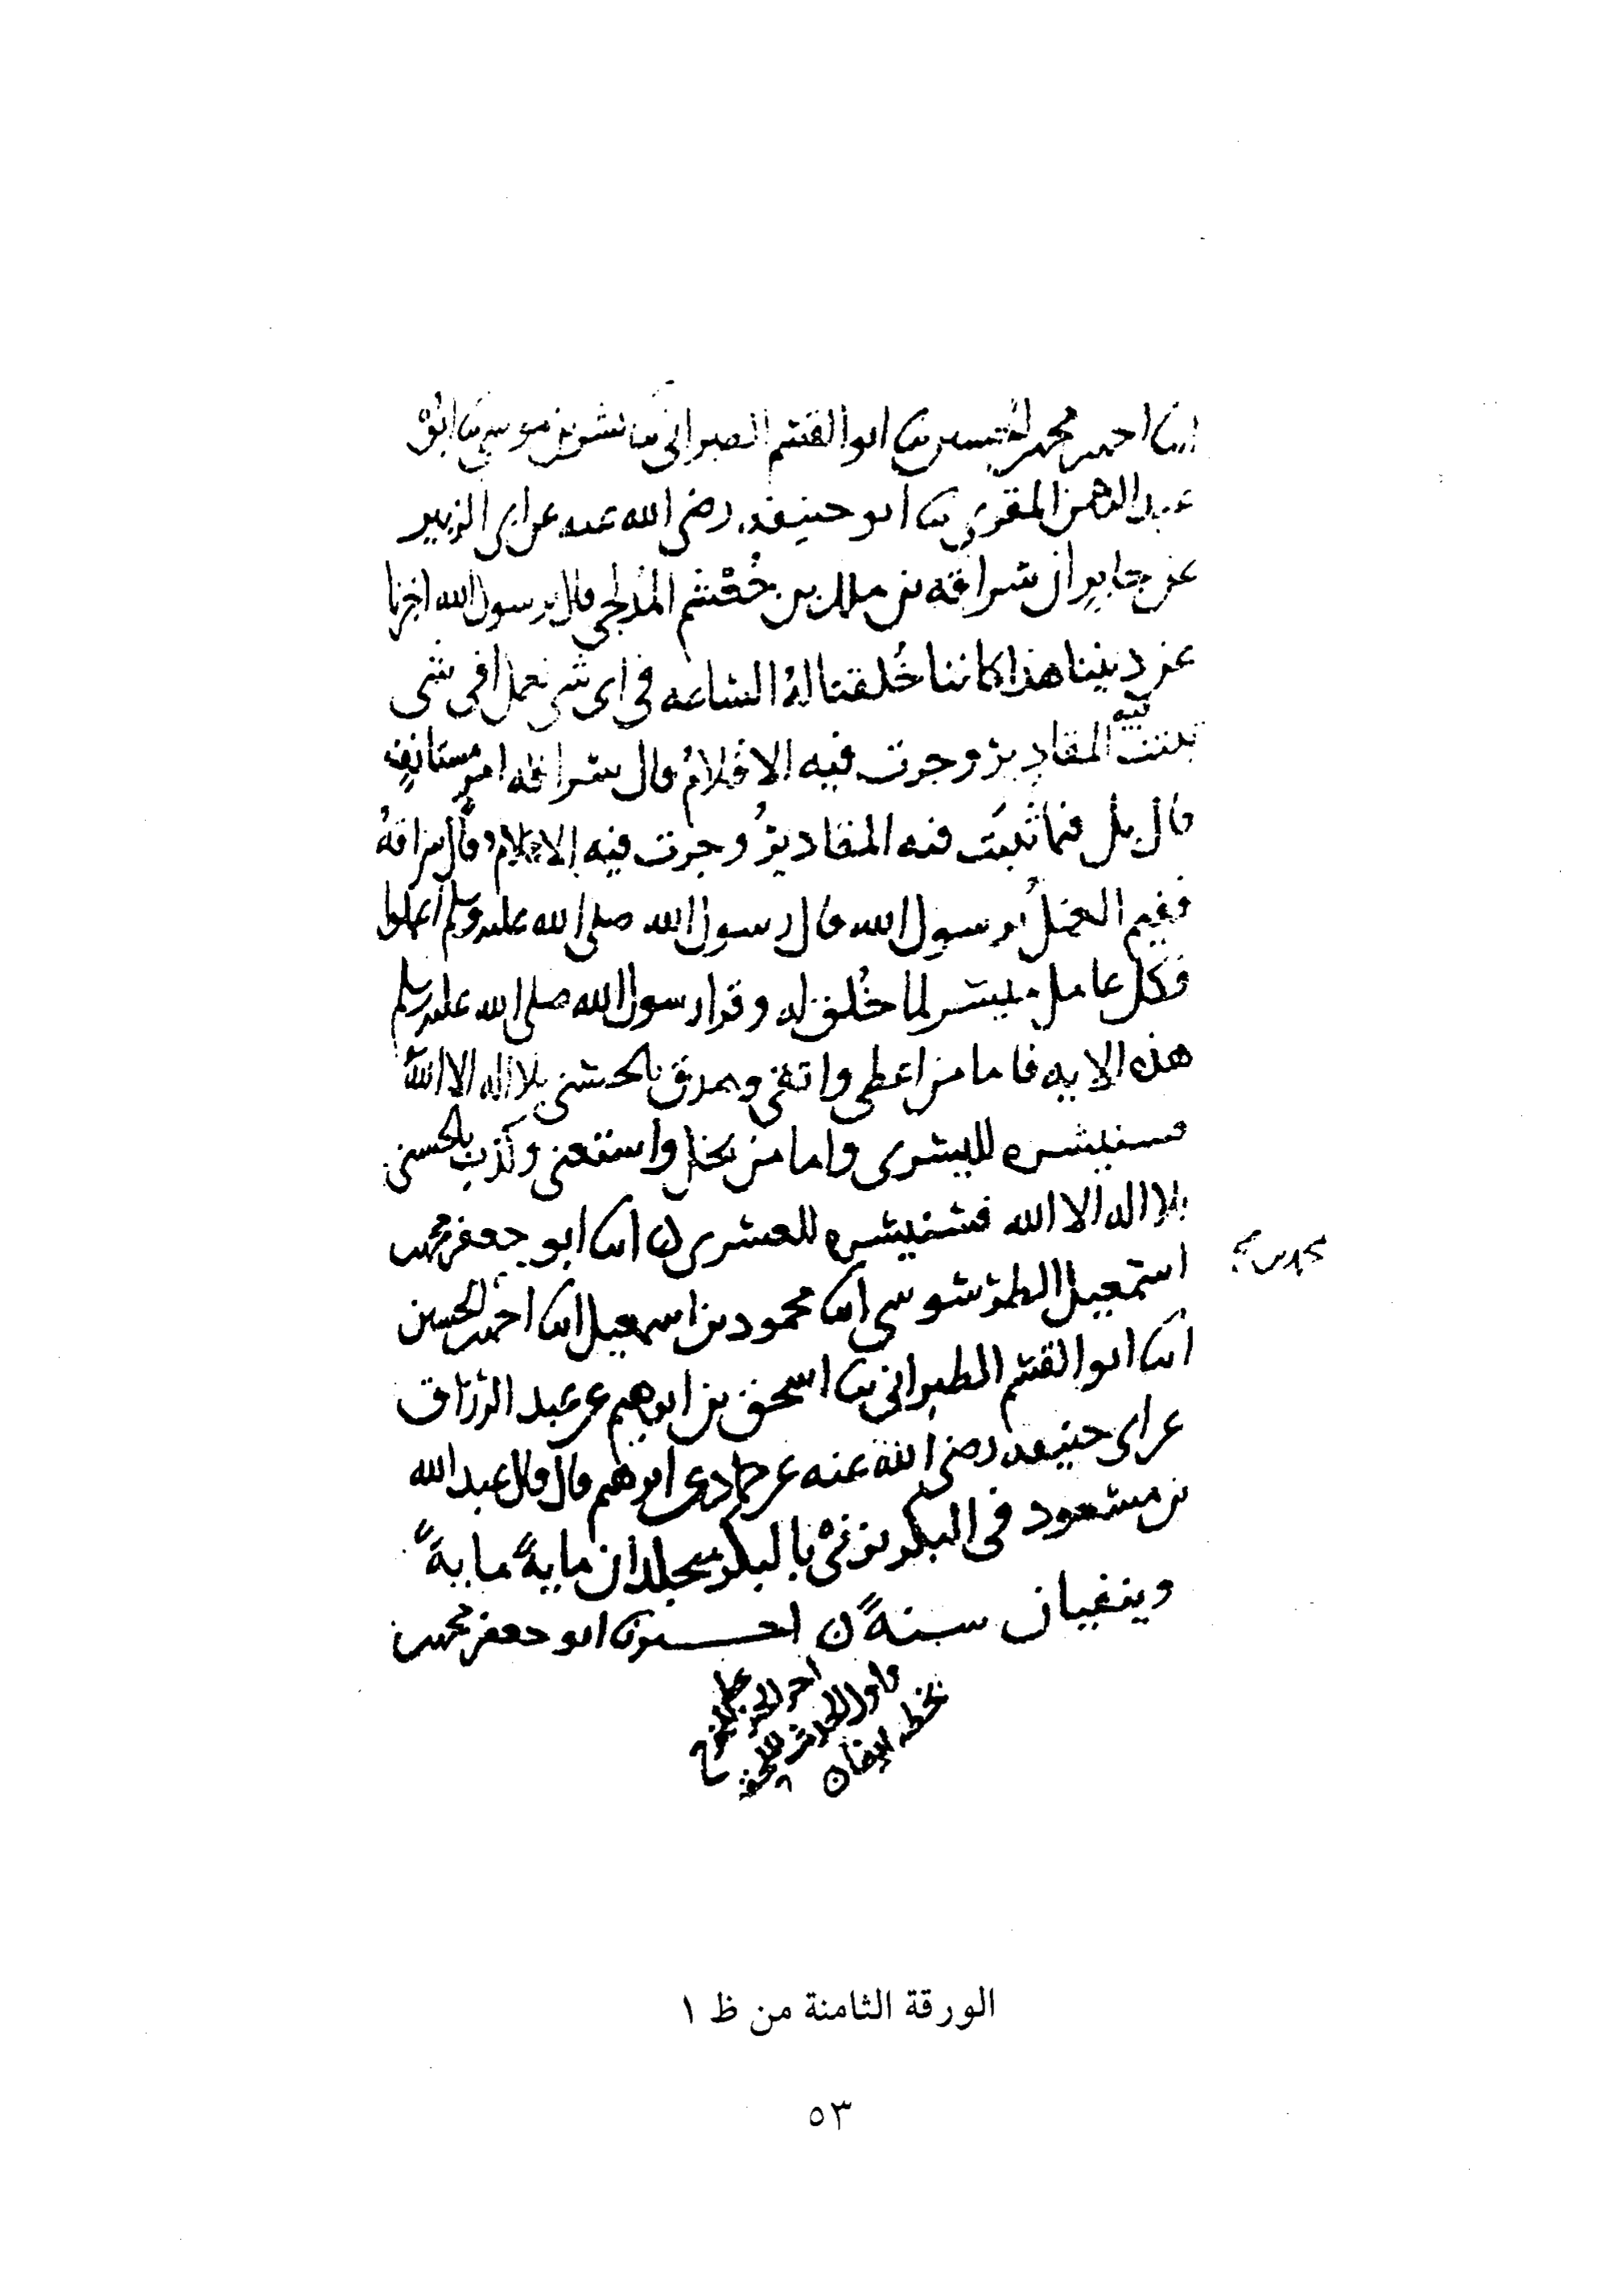 انا احمد محمد بن الحسين نا ابو القسم الطبراني نا بشر بن موسى نا ابو
عبد الرحمن المقرى نا ابو حنيفه رضى الله عنه عن ابى الزبير
عن جابر ان سراقه بن ملك بن جُعْشم المُدلجي قال يرسول الله اخبرنا
عن ديننا هذا كاننا خُلقنا لهُ الساعه فى اى شى نعمل افى شى
ثبتت فيه المقادير وجرت فيه الاقلامُ قال سراقه امر مستانفٍ
قال بل فيما ثبتت فيه المقاديرُ وجرت فيه الاقلام قال سراقهُ
ففيم العملُ يرسول الله قال رسول الله صلى الله عليه وسلم اعملوا
فكل عامل ميسر لما خُلق له وقرا رسول الله صلى الله عليه وسلم
هذه الايه فاما من اعطى واتقى وصدق بالحسنى بلا اله الا اللهُ
فسنيسره لليسرى واما من بخل واستغنى وكذب بالحسنى
بلا اله الا الله فسنيسره للعسرى ن انا ابو جعفر محمد بن
اسمعيل الطرسوسي انا محمود بن اسمعيل انا احمد بن الحسين
انا ابو القسم الطبراني نا اسحق بن ابرهيم عن عبد الرزاق
عن ابى حنيفه رضى الله عنه عن حماد عن ابرهيم قال قال عبد الله
بن مسعود فى البكر يزنىْ بالبكر يجلدان مايةً مايةً
وينفيان سنةً ن اخبرنا ابو جعفر محمد بن
بخطه
الورقة الثامنة من ظ ١
٥٣